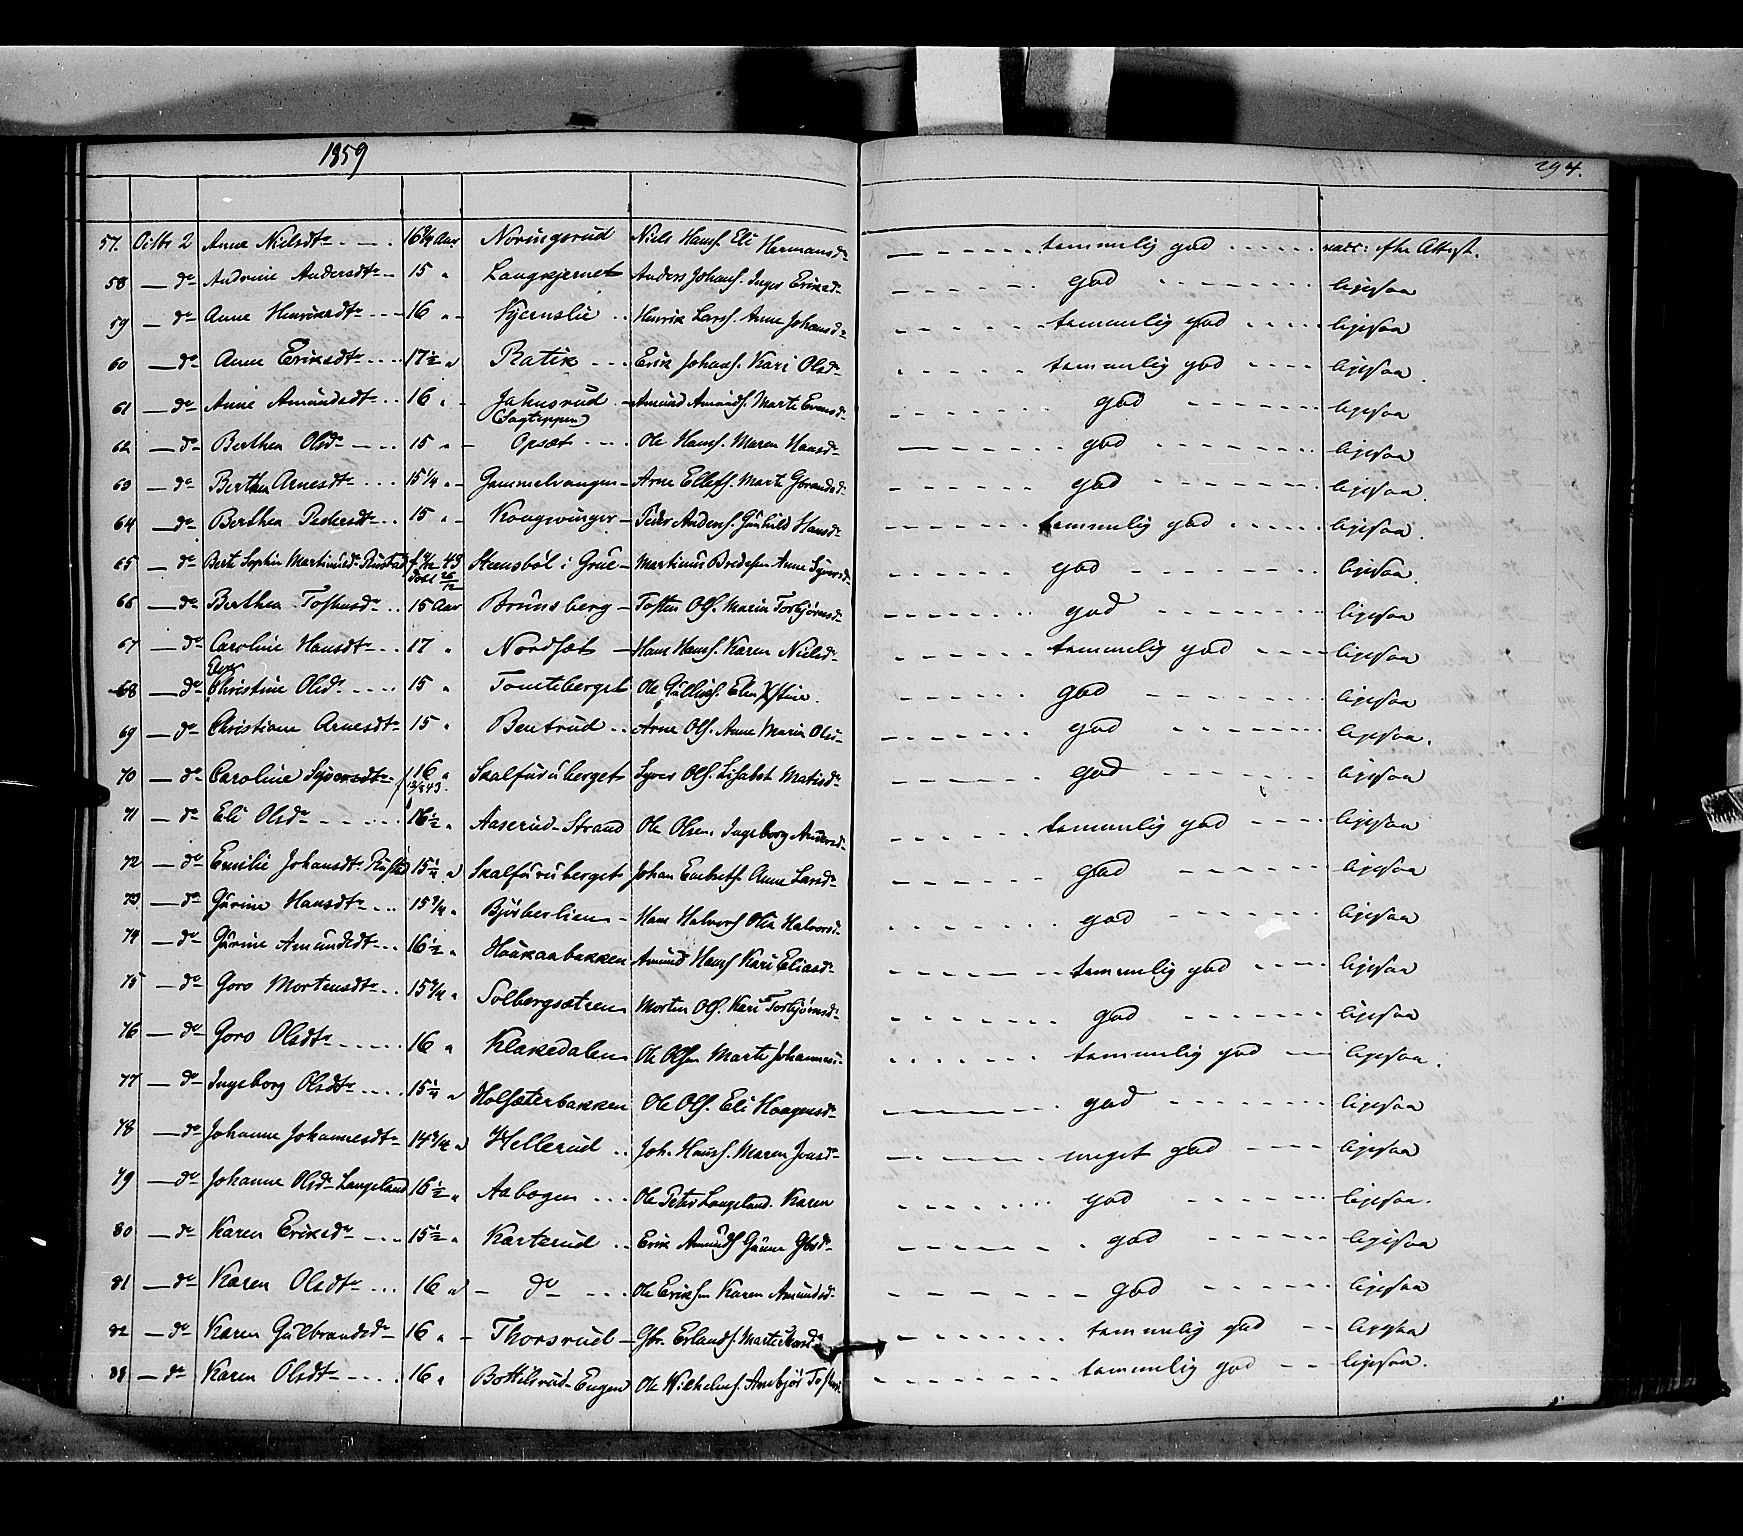 1859
294.
57. Octbr 2 Anne Nielsdtr 16 3/4 Aar Noringsrud Niels Hansf. Eli Hermansdr temmelig god vacc: efter Attest.
58 — do Andrine Andersdtr 15 " Langkjernet Anders Johansf. Inger Eriksdr god ligesaa
59 — do Anne Henriksdtr 16 " Kjernslie Henrik Larsf. Anne Johansdr temmelig god ligesaa
60 — do Anne Eriksdtr 17 1/2 " Ratik Erik Johansf. Kari Olsdr temmelig god ligesaa
61 — do Anne Amundsdtr 16 " Jahnsrud Amund Amundsf. Marte Evensdr god ligesaa
(Sagteppen)
62 — do Berthea Olsdr 15 " Opsæt Ole Hansf. Maren Hansdr god ligesaa
63 — do Berthea Arnesdtr 15 1/4 " Gammelvangen Arne Ellefsf. Marte Gbrandsd. god ligesaa.
64 — do Berthea Pedersdtr 15 " Kongsvinger Peder Andersf. Gunhild Hansdr temmelig god ligesaa.
65 — do Berte Sophie Martinusdr Rustad 43 Steensbøl i Grue Martinus Bredesen Anne Syversdr god ligesaa.
66 — do Berthea Tostensdr 15 Aar Brunsberg Tosten Olsf. Maria Torbjørnsdr god ligesaa
67 — do Caroline Hansdtr 17 " Nordsæt Hans Hansf. Karen Nielsdr temmelig god ligesaa
68 — do Christine Olsdr 15 " Tomteberget Ole Gullichsf. Elen Xstine. god ligesaa
69 — do Christiane Arnesdtr 15 " Bentrud Arne Olsf. Anne Maria Olsdr god ligesaa.
70 — do Caroline Syversdtr 16 " Skalfuruberget Syver Olsf. Lisabet Matisdr god ligesaa
43.
71 — do Eli Olsdr 16 1/2 " Aaserud-Strand Ole Olsen. Ingeborg Andersdr temmelig god ligesaa
72 — do Emilie Johansdtr 15 1/4 " Skalfuruberget Johan Embretsf. Anne Larsdr god ligesaa
73 — do Gurine Hansdtr 15 3/4 " Bjørberlien Hans Halvorsf Olia Halvorsdr god ligesaa
74 — do Gurine Amundsdtr 16 1/2 " Haukaabakken Amund Hansf Kari Eliasdr temmelig god ligesaa
75 — do Goro Mortensdtr 15 3/4 " Solbergsætren Morten Olsf. Kari Torbjørnsdr god ligesaa
76 — do Goro Olsdtr 16 " Klakedalen Ole Olsen Marte Johannesdr temmelig god ligesaa.
77 — do Ingeborg Olsdtr 15 1/4 " Holsæterbakken Ole Olsf. Eli Haagensdr god ligesaa
78 — do Johanne Johannesdtr 14 3/4 " Hellerud Joh. Hansf. Maren Jonsdr meget god ligesaa
79 — do Johanne Olsdr Langeland 16 1/2 " Aabogen Ole Peter Langeland. Karen god ligesaa.
80 — do Karen Eriksdr 15 1/2 " Karterud Erik Amundsf god ligesaa
81 — do Karen Olsdtr 16 " do Ole Eriksen Karen Amundsdr god ligesaa
82 — do Karen Gulbrandsdr 16 " Thorsrud Gbr. Erlandsf. Marte temmelig god ligesaa
83 — do Karen Olsdtr 16 " Bottilsrud-Eugen Ole Wilhelmsf. Annbjør Tostens temmelig god ligesaa.